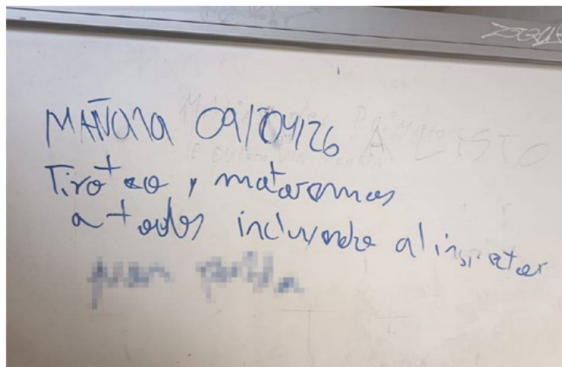 MAÑANA 09/04/26
Tiroteo y mataremos
a todos incluyendo al inspector